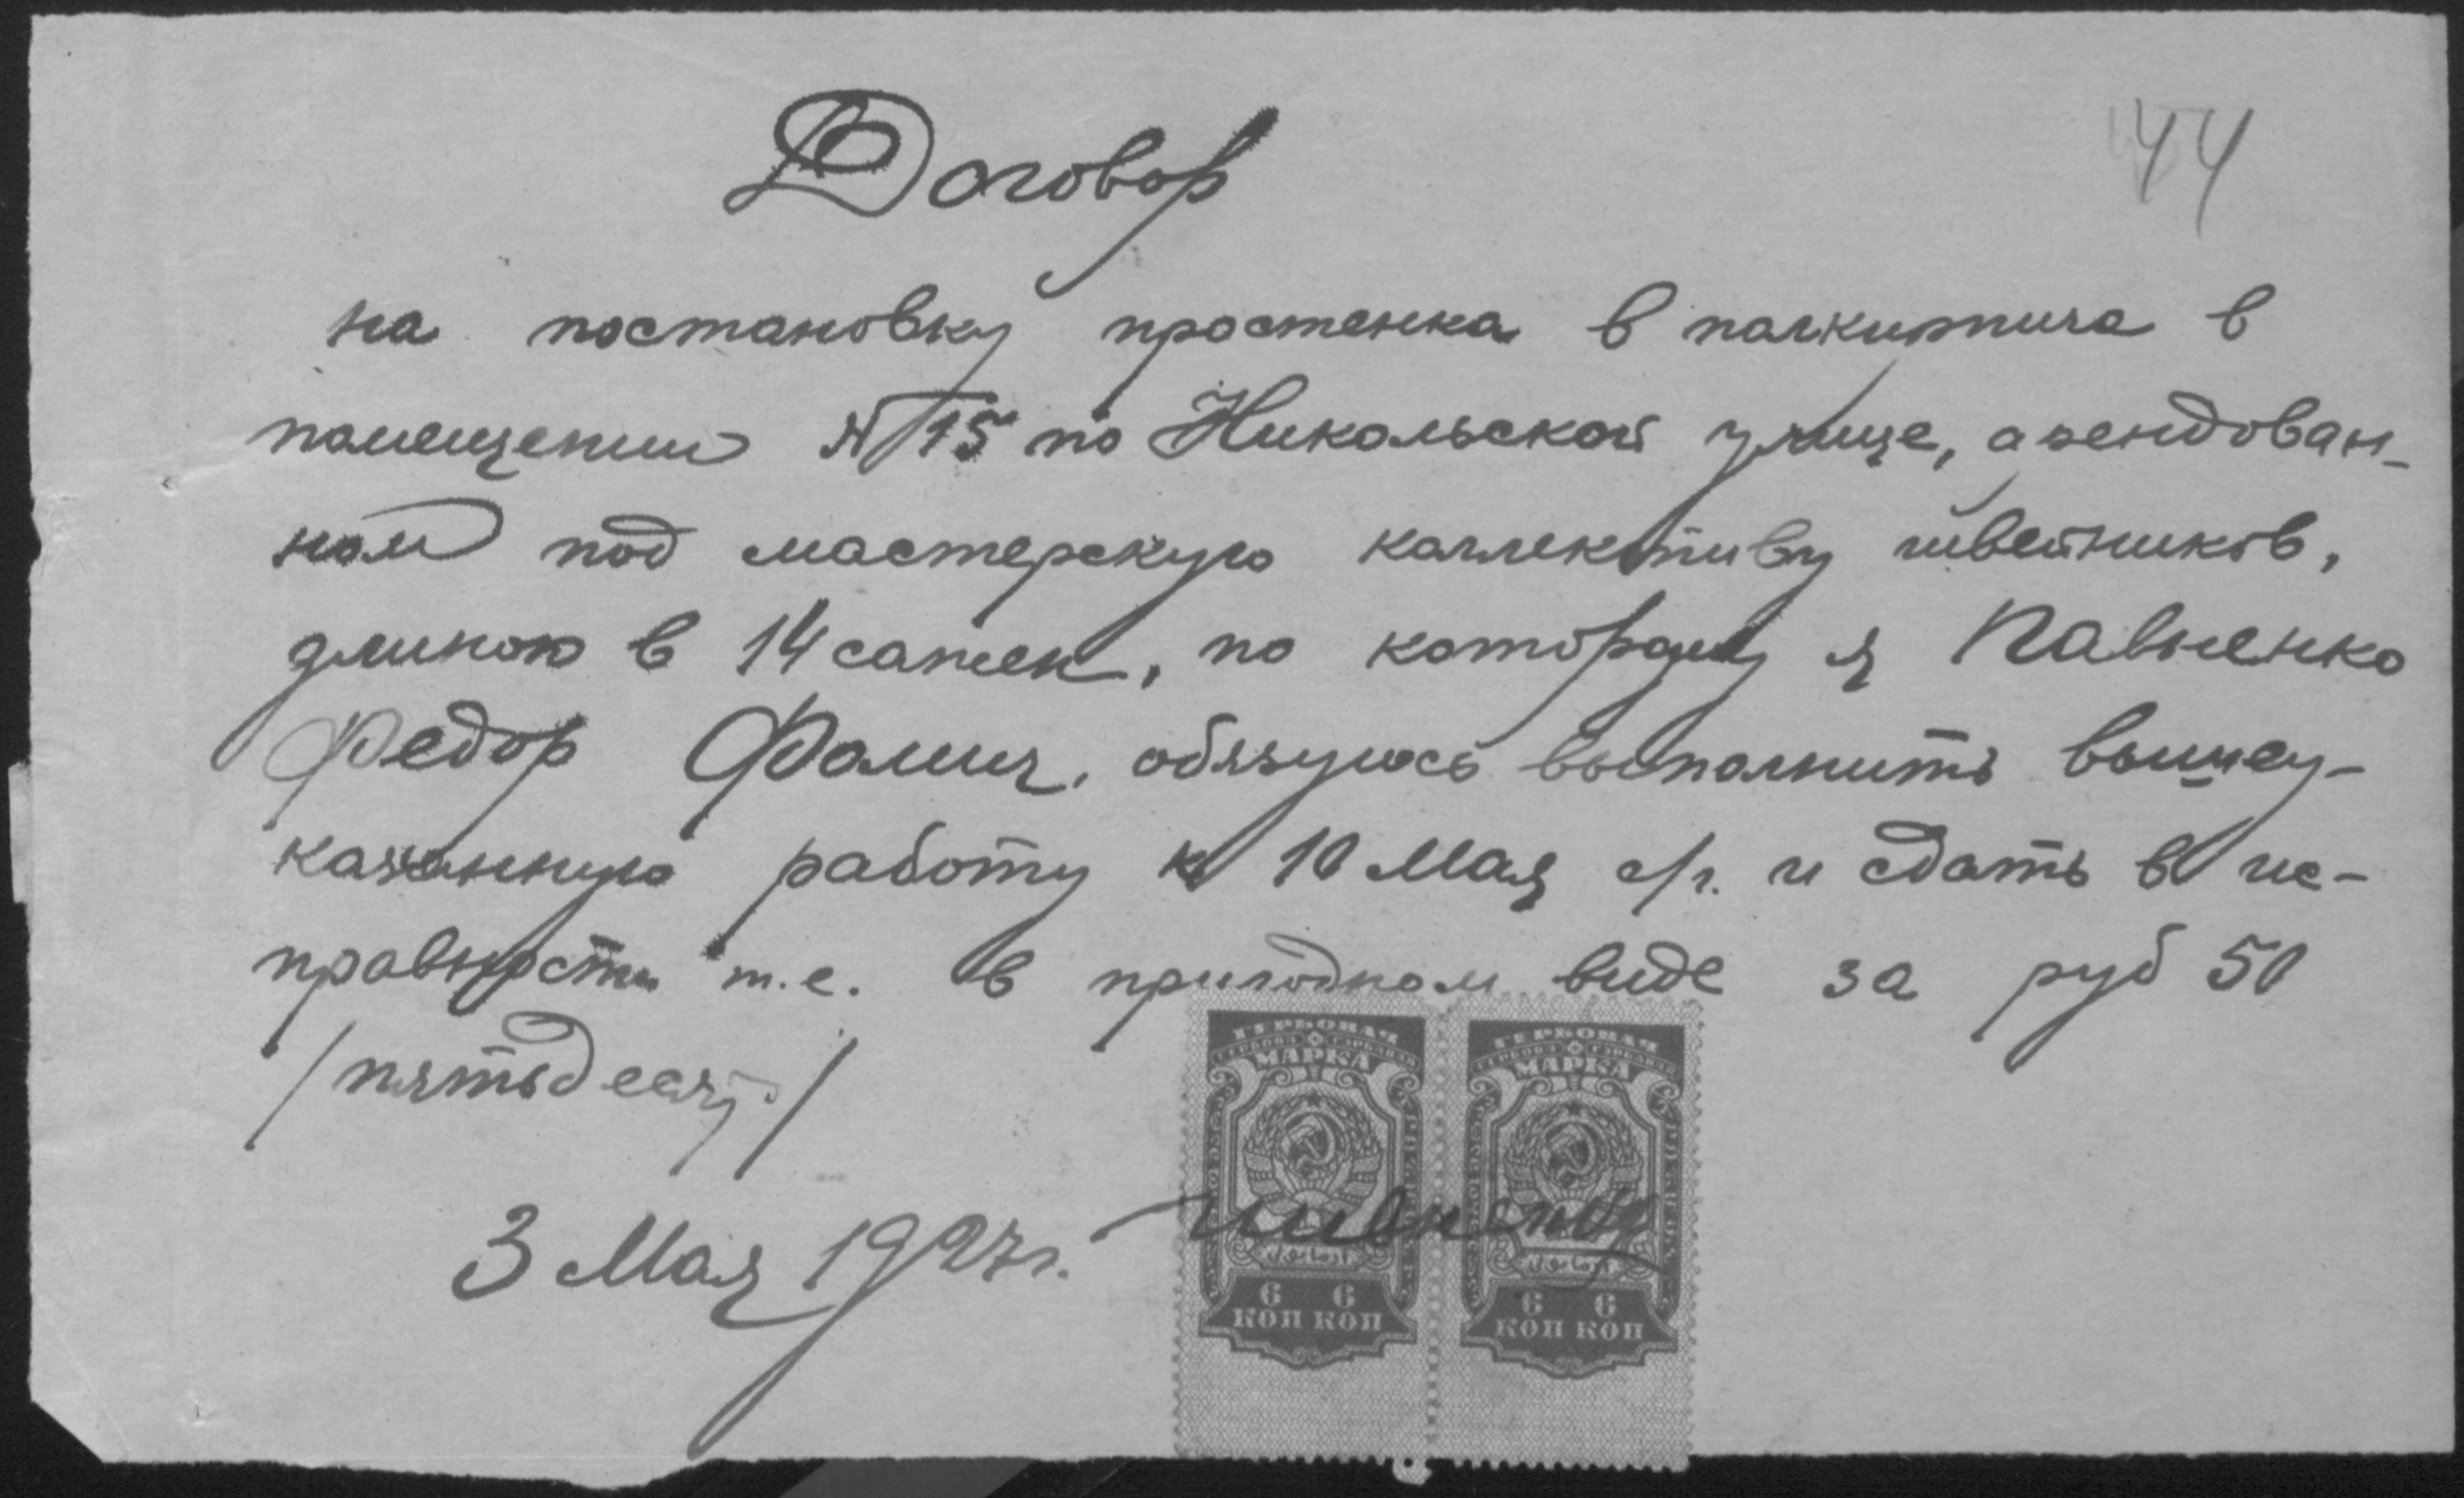 44
Договор
на постановку простенка в полкирпича в
помещении № 15 по Никольской улице, арендован-
ном под мастерскую коллективу швейников,
длиною в 14 сажен, по которому я Павненко
Федор Фомич, обязуюсь выполнить вышеу-
казанную работу к 10 Мая с/г. и сдать в ис-
правности т.е. в пригодном виде за руб 50
/пятьдесят/
3 Мая 1927г.
ГЕРБОВАЯ ГЕРБОВАЯ
МАРКА МАРКА
6 6 6 6
КОП КОП КОП КОП